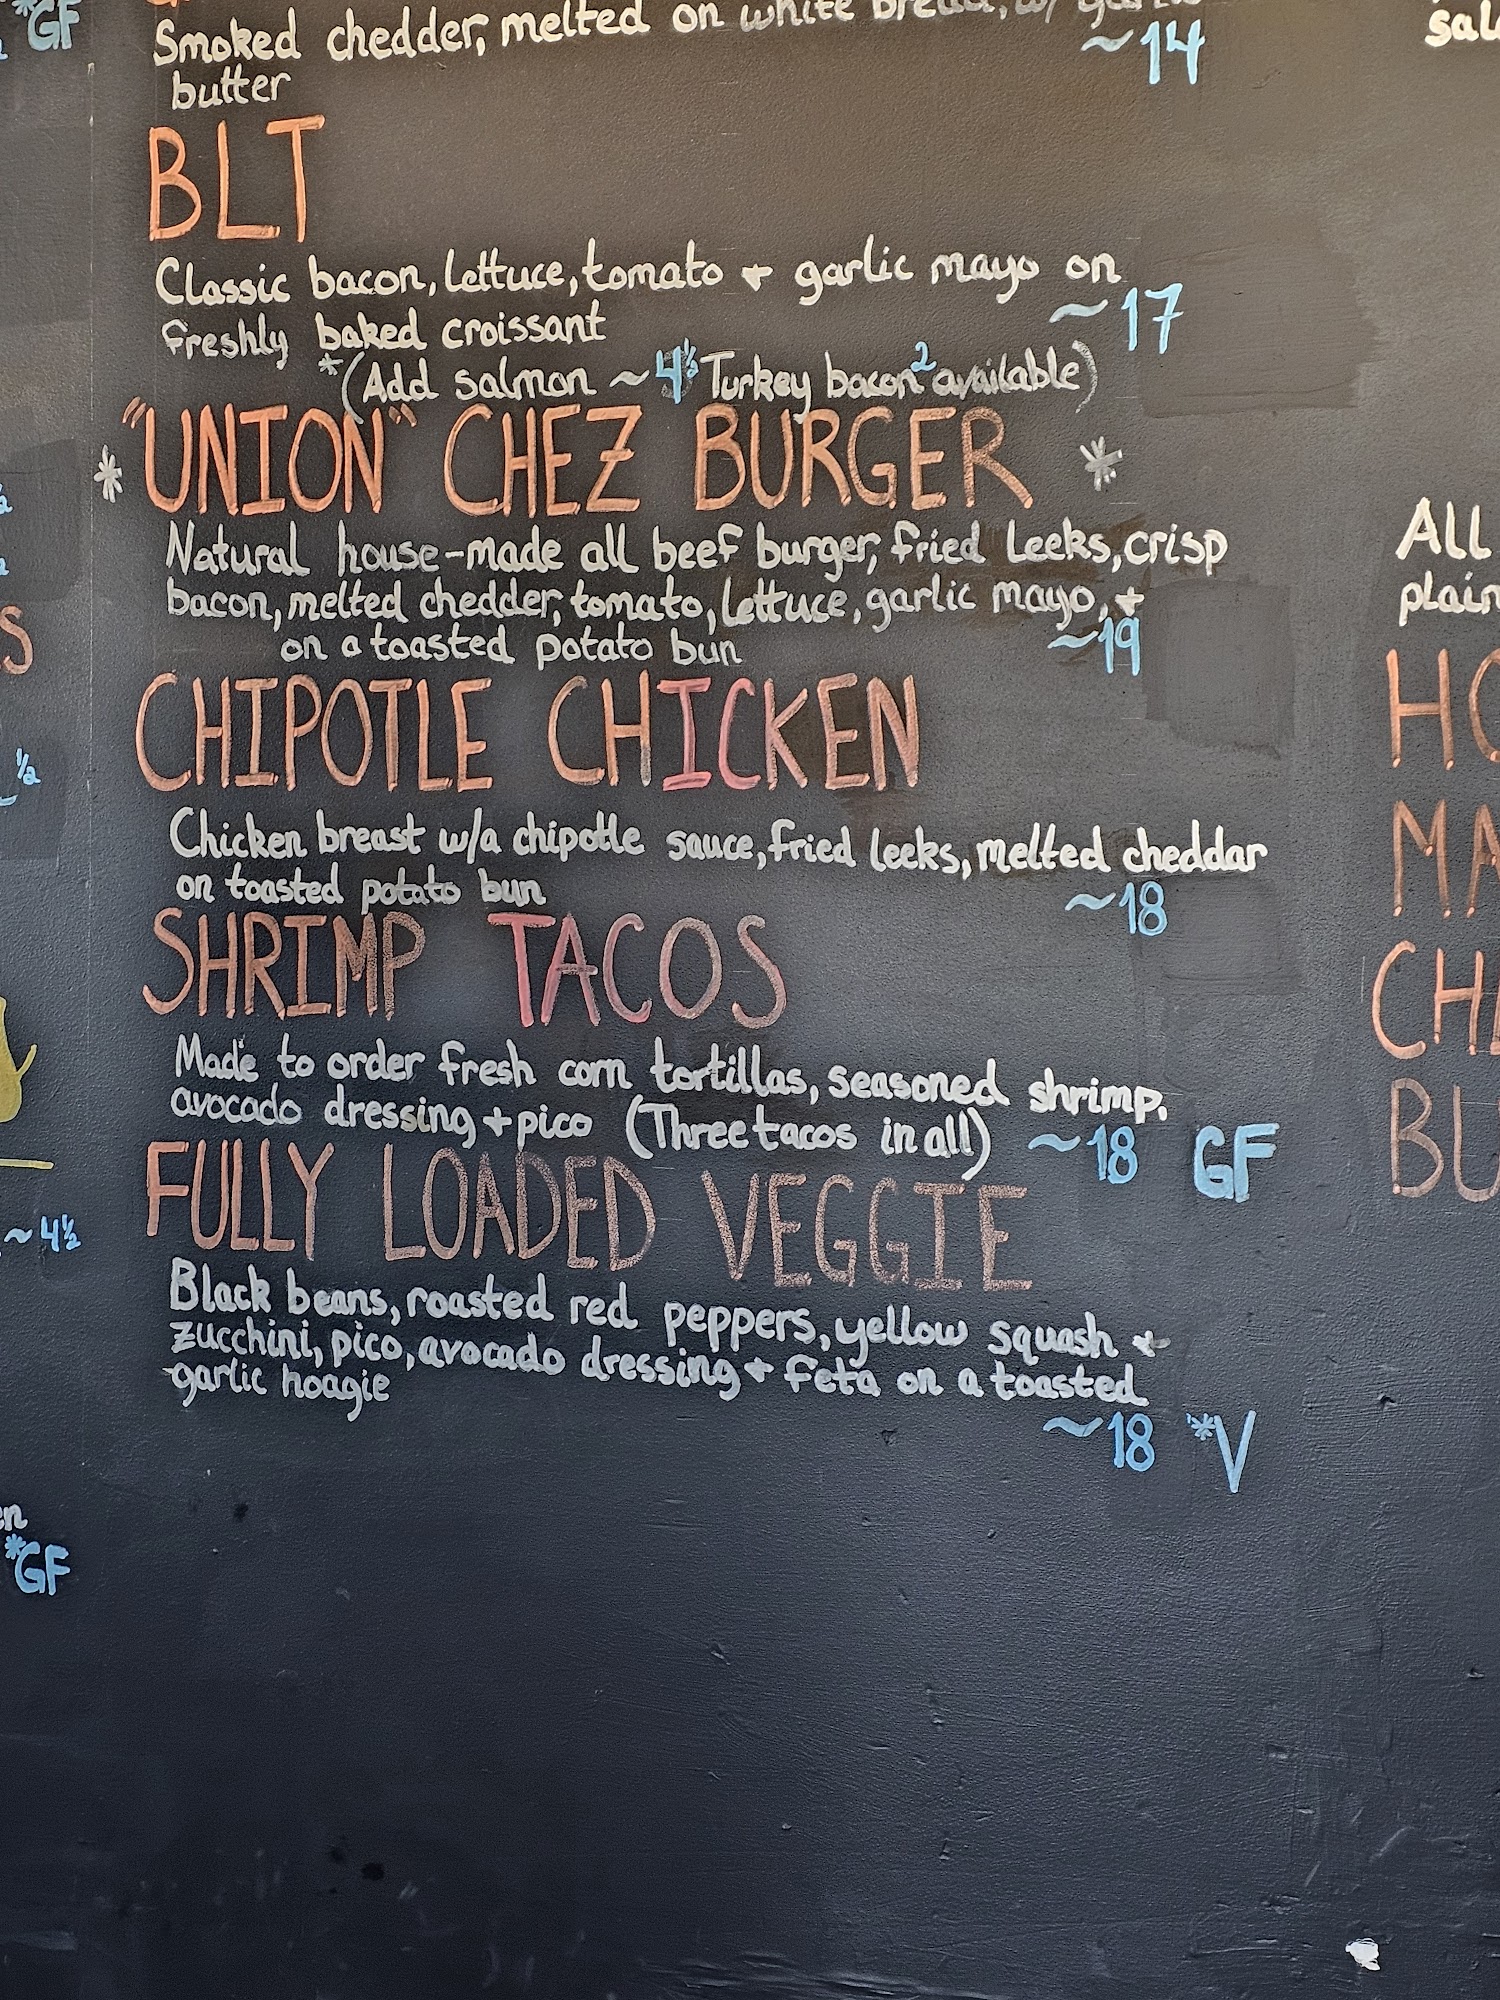 *GF
Smoked chedder, melted on white bread, w/ garlic
~14
butter
BLT
Classic bacon, lettuce, tomato + garlic mayo on
~17
freshly baked croissant
*(Add salmon ~4½ Turkey bacon² available)
"UNION" CHEZ BURGER *
*
Natural house-made all beef burger, fried leeks, crisp
bacon, melted chedder, tomato, lettuce, garlic mayo, +
on a toasted potato bun ~19
CHIPOTLE CHICKEN
Chicken breast w/a chipotle sauce, fried leeks, melted cheddar
on toasted potato bun ~18
SHRIMP TACOS
Made to order fresh corn tortillas, seasoned shrimp,
avocado dressing + pico (Three tacos in all) ~18 GF
FULLY LOADED VEGGIE
Black beans, roasted red peppers, yellow squash +
zucchini, pico, avocado dressing + feta on a toasted
garlic hoagie
~18 *V
S
½
~4½
en
*GF
sal
All
plain
HO
MA
CH
BU